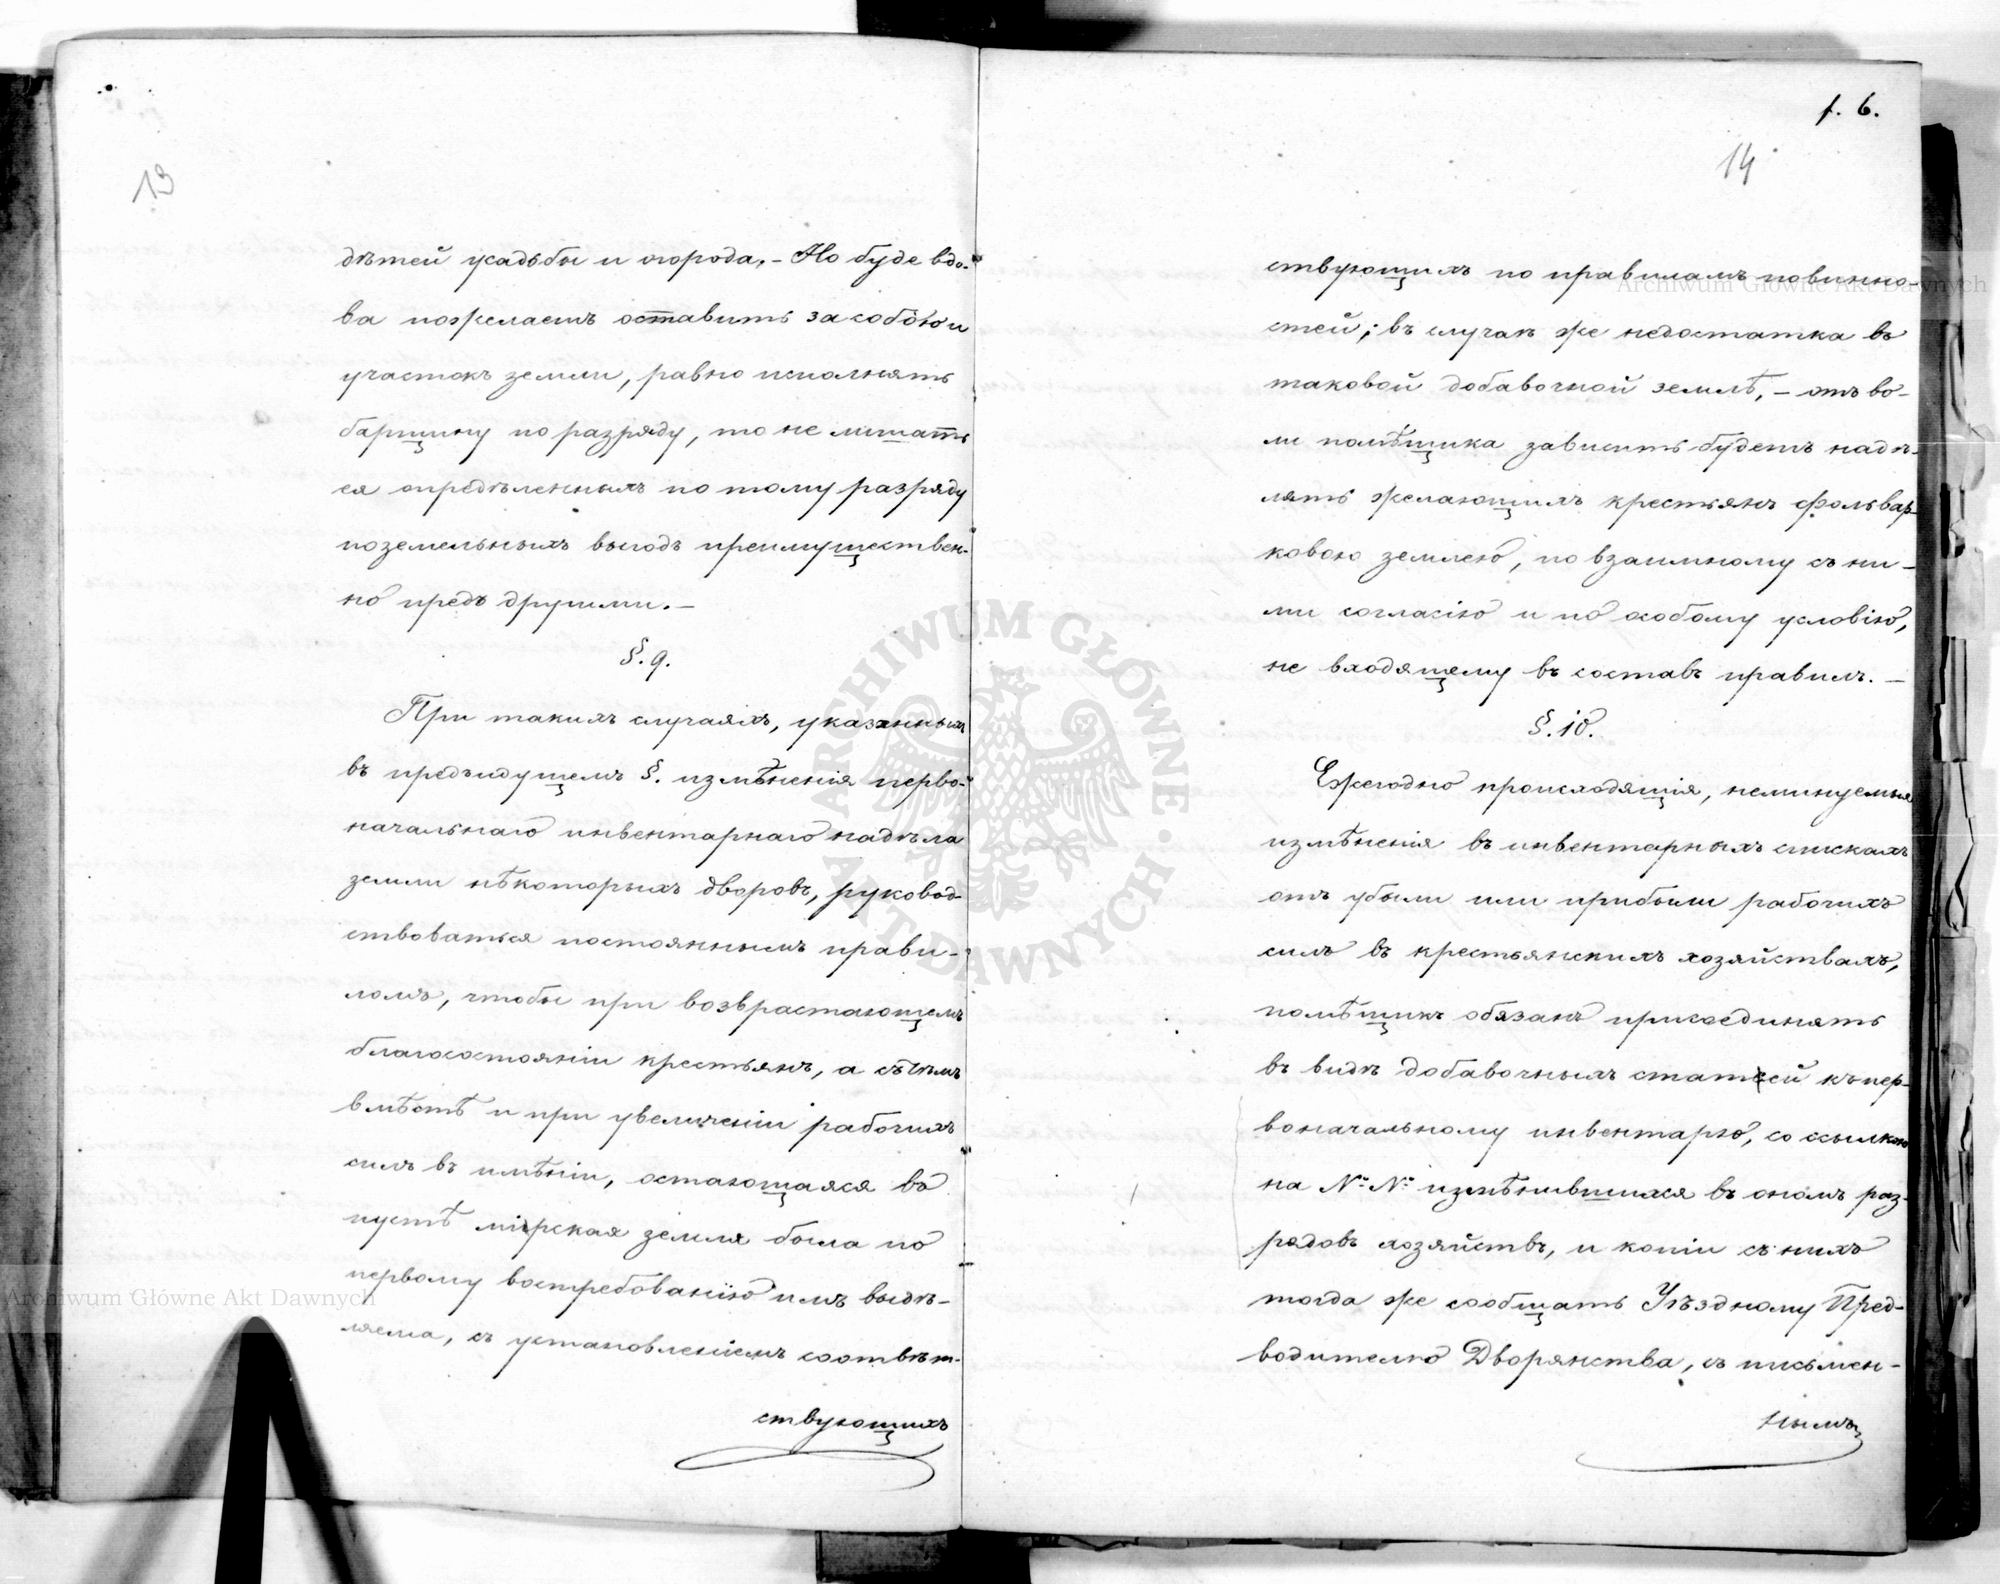 13
дѣтей усадьбы и огорода. – Но буде вдо-
ва пожелаетъ оставить за собою и
участокъ земли, равно исполнять
барщину по разряду, то не лишать
ея опредѣленныхъ по тому разряду
поземельныхъ выгодъ преимуществен-
но предъ другими. –
§. 9.
При такихъ случаяхъ, указанныхъ
въ предъидущемъ §. измѣненія перво-
начальнаго инвентарнаго надѣла
земли нѣкоторыхъ дворовъ, руковод-
ствоваться постояннымъ прави-
ломъ, чтобы при возврастающемъ
благосостояніи крестьянъ, а съ тѣмъ
вмѣстѣ и при увеличеніи рабочихъ
силъ въ имѣніи, остающаяся въ
пустѣ мірская земля была по
первому востребованію имъ выдѣ-
ляема, съ установленіемъ соотвѣт-
ствующихъ
f. 6.
14
ствующихъ по правиламъ повинно-
стей; въ случаѣ же недостатка въ
таковой добавочной землѣ, – отъ во-
ли помѣщика зависить будетъ надѣ-
лять желающихъ крестьянъ фольвар-
ковою землею, по взаимному съ ни-
ми согласію и по особому условію,
не входящему въ составъ правилъ. –
§. 10.
Ежегодно происходящія, неминуемыя
измѣненія въ инвентарныхъ спискахъ
отъ убыли или прибыли рабочихъ
силъ въ крестьянскихъ хозяйствахъ,
помѣщикъ обязанъ присоединять
въ видѣ добавочныхъ статей къ пер-
воначальному инвентарю, со ссылкою
на №№ измѣнившихся въ ономъ раз-
рядовъ хозяйствъ, и копіи съ нихъ
тогда же сообщать Уѣздному Пред-
водителю Дворянства, съ письмен-
нымъ
Archiwum Główne Akt Dawnych
Archiwum Główne Akt Dawnych
ARCHIWUM GŁÓWNE AKT DAWNYCH